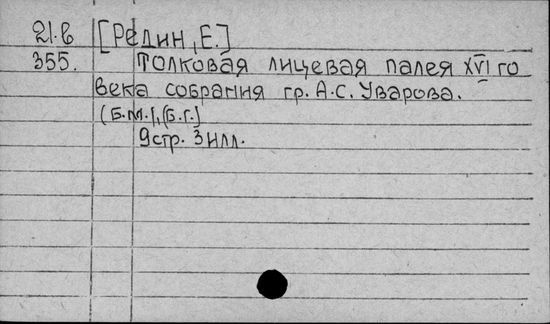 21.в [Редин, Е.]
355. Толковая лицевая палея XVI го
века собрания гр. А.С. Уварова.
(Б.м.), (б.г.)
9стр. 3 илл.